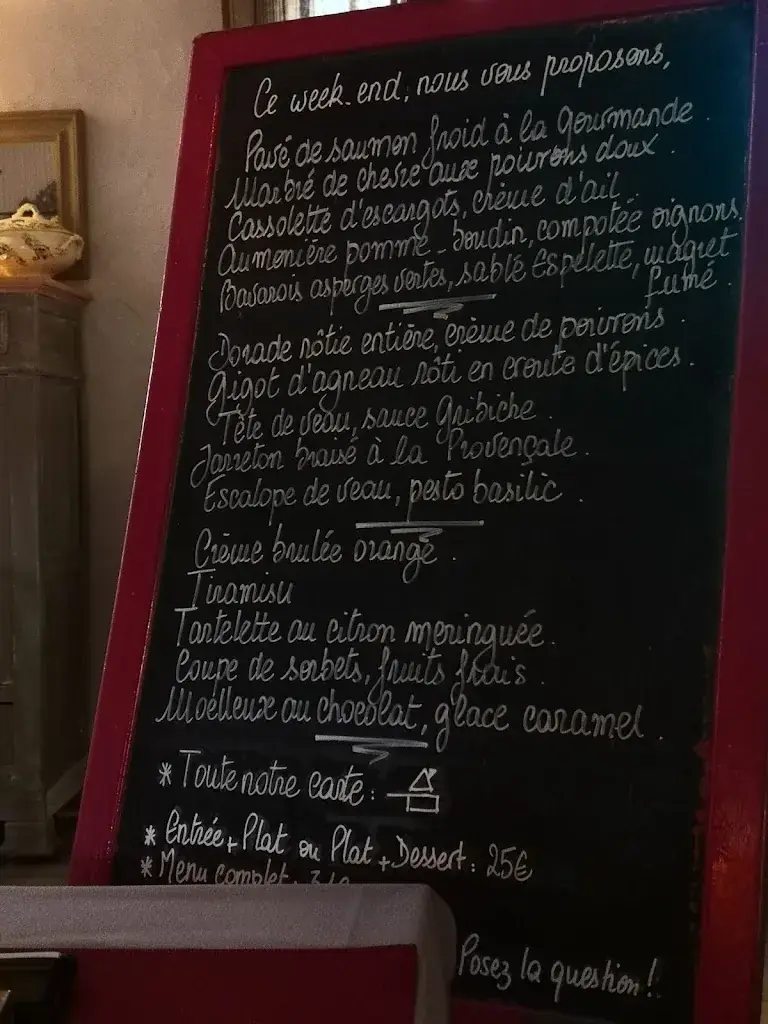 Ce week-end, nous vous proposons,
Pavé de saumon froid à la Gourmande.
Marbré de chèvre aux poivrons doux.
Cassolette d'escargots, crème d'ail.
Aumonière pomme-boudin, compotée oignons.
Bavarois asperges vertes, sablé Espelette, magret
fumé.
Dorade rôtie entière, crème de poivrons.
Gigot d'agneau rôti en croute d'épices.
Tête de veau, sauce Gribiche.
Jarreton braisé à la Provençale.
Escalope de veau, pesto basilic.
Crème brulée orange.
Tiramisu
Tartelette au citron meringuée.
Coupe de sorbets, fruits frais.
Moelleux au chocolat, glace caramel.
* Toute notre carte:
* Entrée + Plat ou Plat + Dessert: 25€
* Menu complet:
Posez la question!